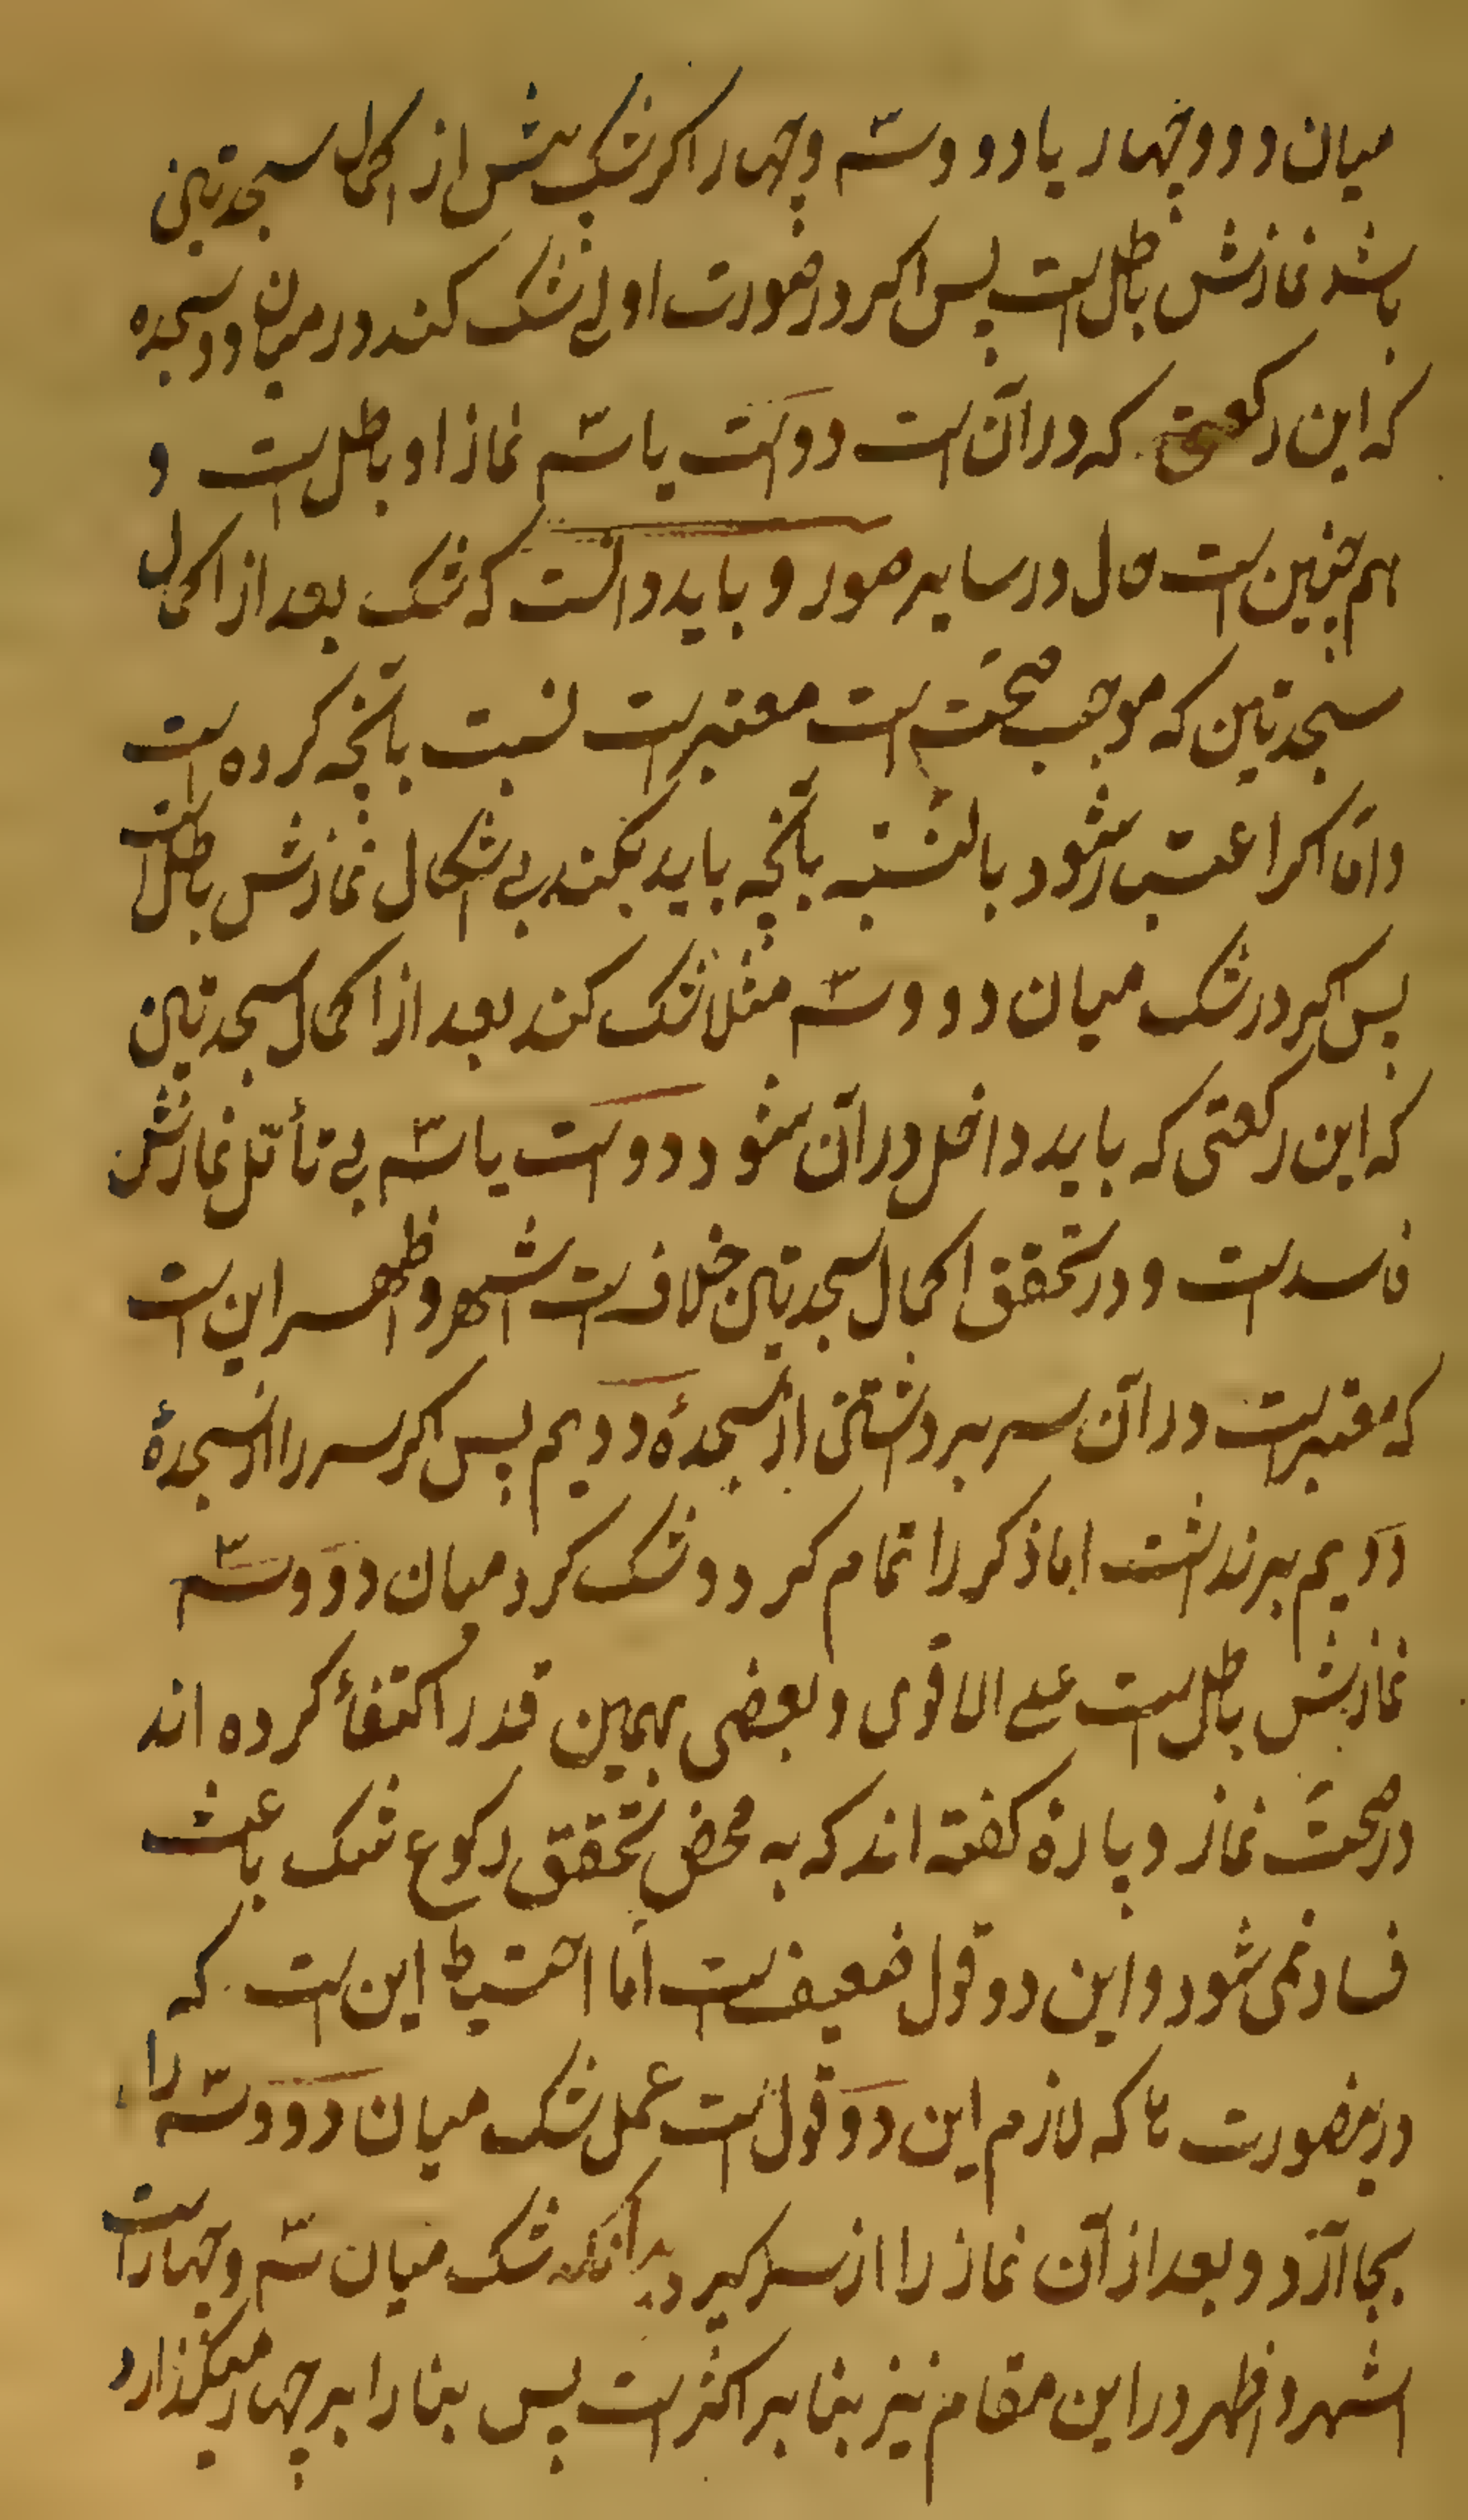 میان دو و چهار یا دو و سه و چهار اکر شک پیش از اکمال سجدتین
باشد نمازش باطل است پس اکر در صورت اولی شک کند در میان دو سجده
که این رکعتی که در آن است دو است یا سه نماز او باطل است و
هم چنین است حال در سایر صور و باید دانست که شک بعد از اکمال
سجدتین که موجب صحّت است معتبر است نسبت بآنچه کرده است
و امّا اکر اعتبار شود بالنّسبه بآنچه باید بکند بی اشکال نمازش باطل است
پس اکر در شک میان دو و سه مثلا شک کند بعد از اکمال سجدتین
که این رکعتی که باید داخل در آن شود دو است یا سه بی تأمّل نمازش
فاسد است و در تحقق اکمال سجدتین خلاف است اشهر و اظهر این است
که معتبر است در آن سر برداشتن از سجدهٔ دویم پس اکر سر را از سجدهٔ
دویم برنداشت اما ذکر را تمام کرد و شک کرد میان دو و سه
نمازش باطل است علی الاقوی و بعضی بهمین قدر اکتفأ کرده اند
در صحّت نماز و پارهٔ کفته اند که به محض تحقق رکوع شک باعث
فساد نمی شود و این دو قول ضعیف است امّا احتیاط این است که
در هر صورت که لازم این دو قول است عمل شک میان دو و سه را
بجا آرد و بعد از آن نماز را از سر کیرد بدانکه شک میان سه و چهار است
اشهر و اظهر در این مقام نیز بنا بر اکثر است پس بنا را بر چهار میکذارد